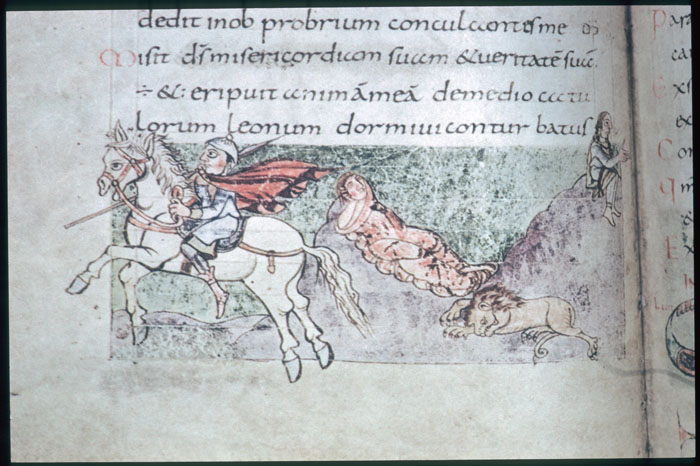 dedit in obprobrium conculcantes me
Misit d̄s misericordiam suam & ueritatē suā
÷ &: eripuit animā meā de medio catu
lorum leonum dormiui conturbatus